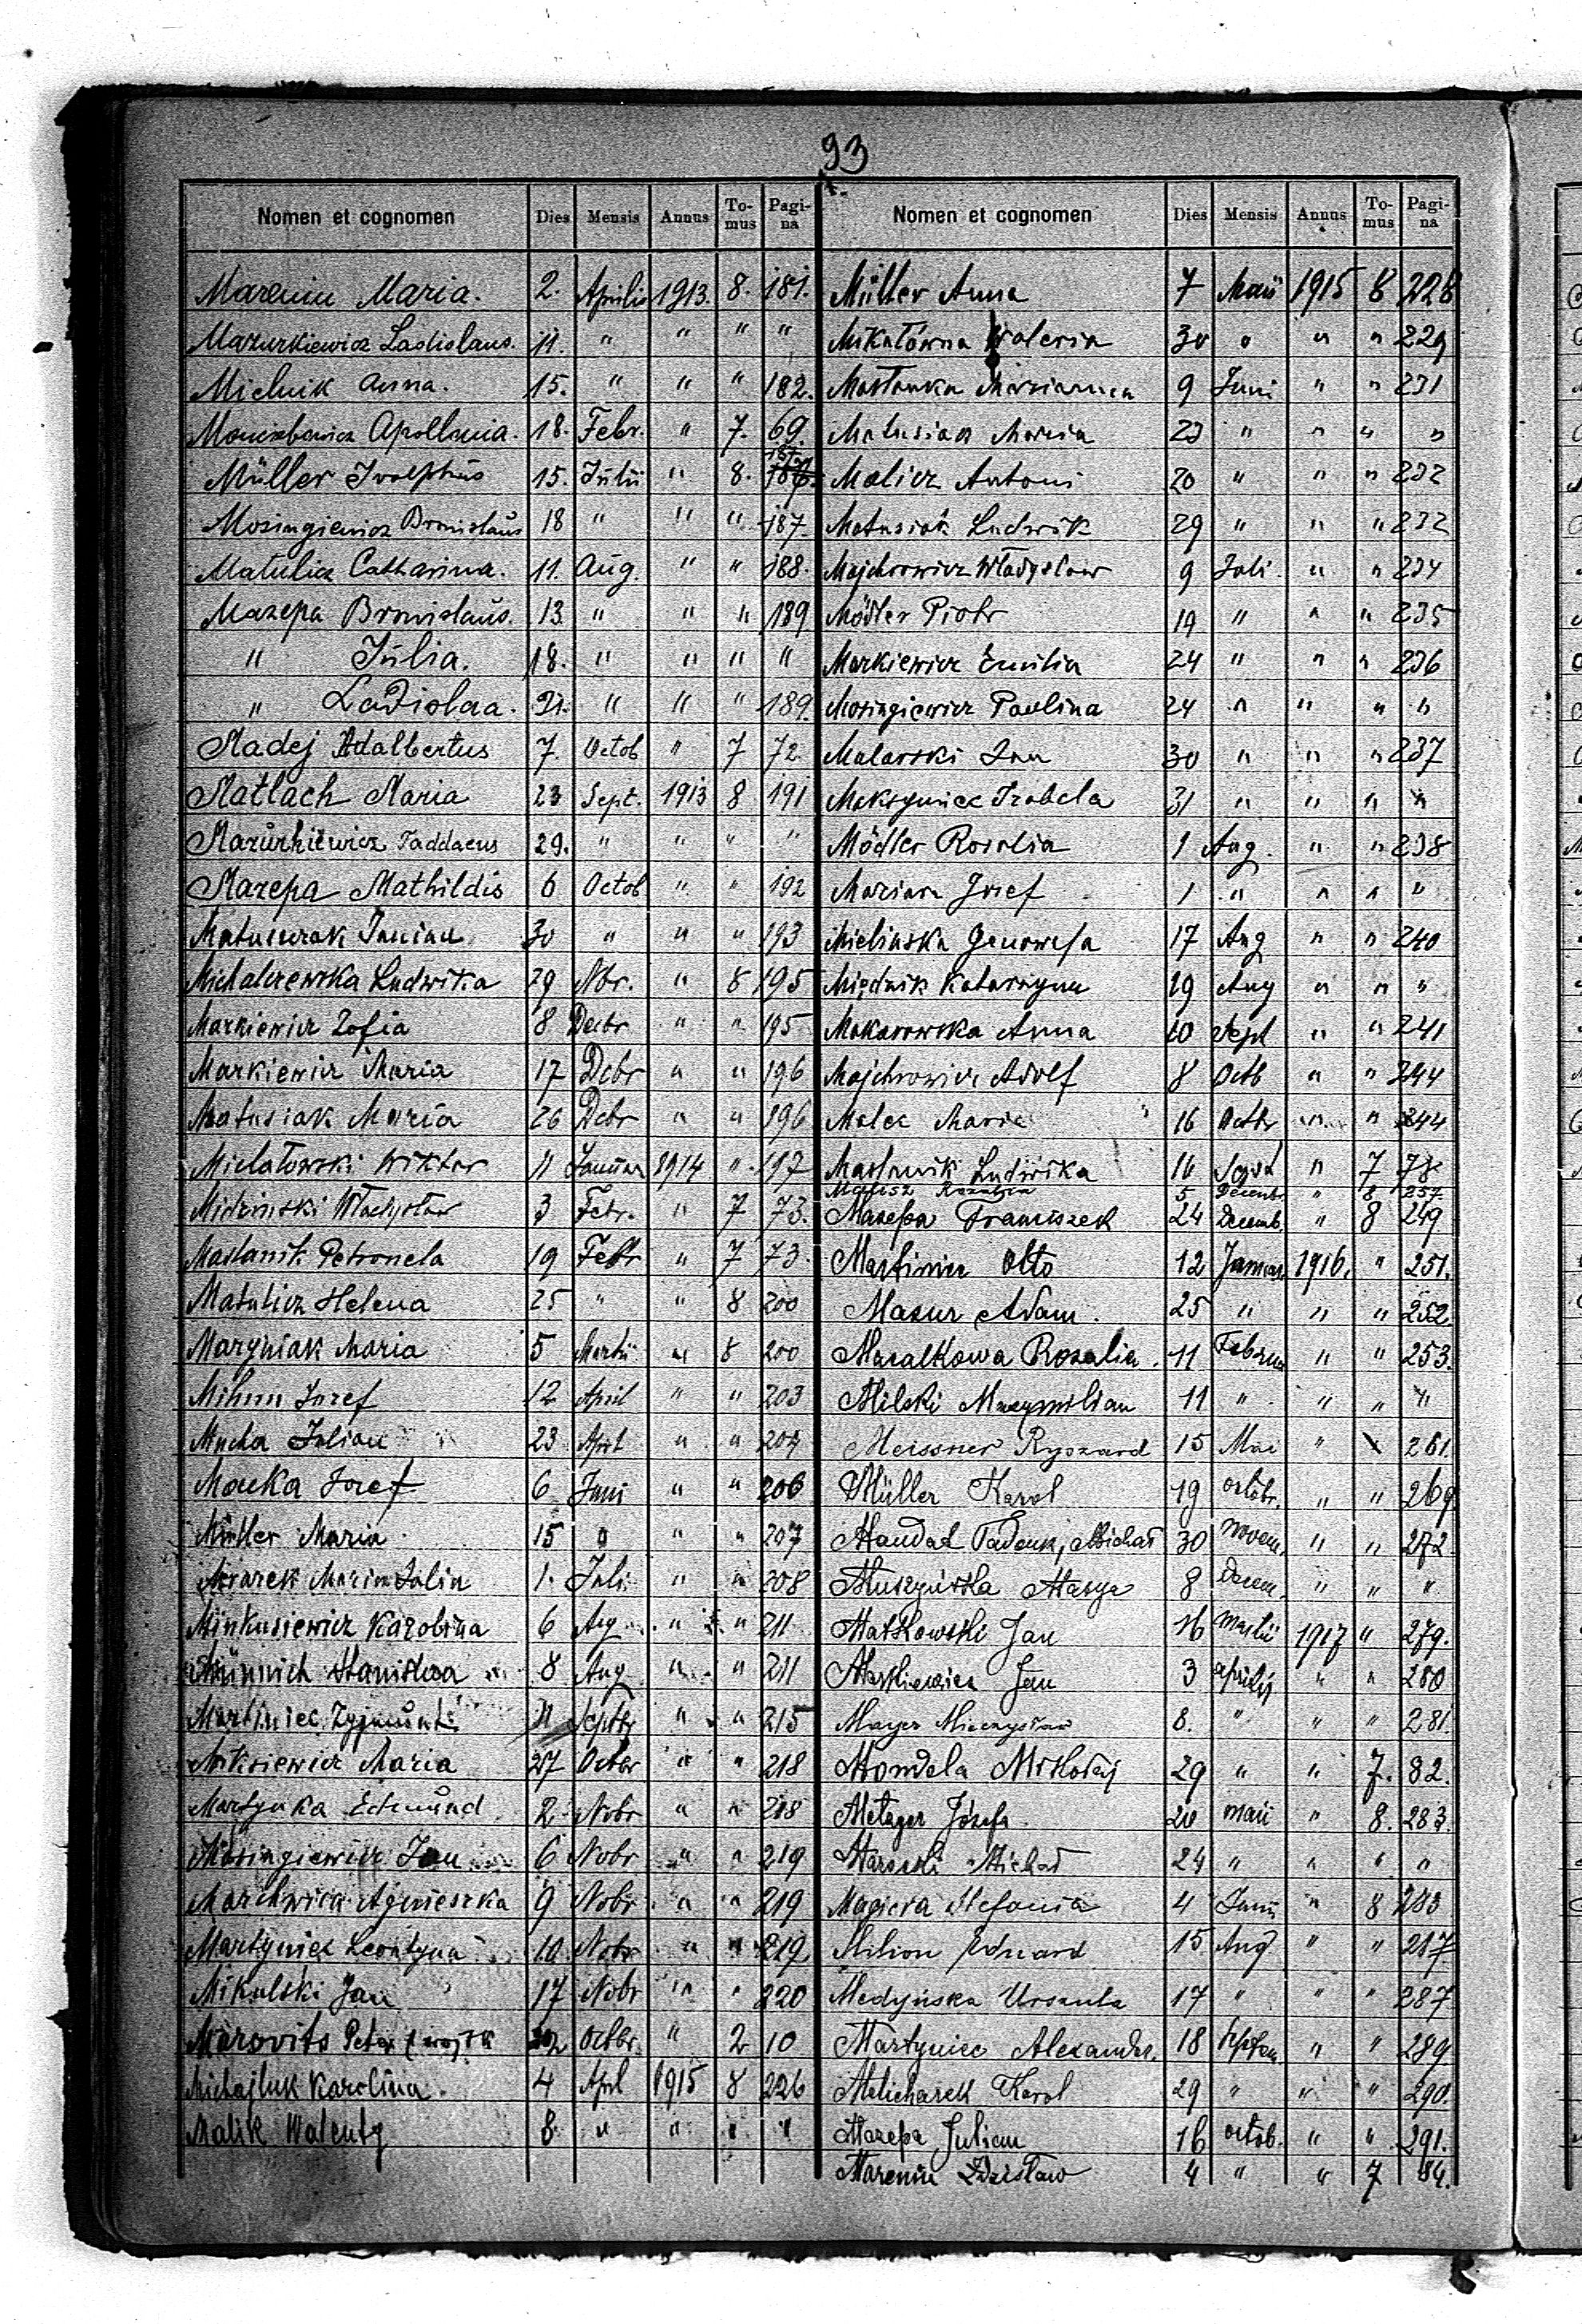 93
Nomen et cognomen Dies Mensis Annus To-mus Pagi-na
Marenin Maria. 2. Aprilis 1913. 8. 181.
Mazurkiewicz Ladislaus. 11. " " " "
Mielnik Anna. 15. " " " 182.
Apollonia. 18. Febr. " 7. 69.
Müller 15. Julii " 8. 187
Mosingiewicz Bronislaus 18 " " " 187.
Matulicz Catharina. 11. Aug. " " 188.
Mazepa Bronislaus. 13. " " " 189
" Julia. 18. " " " "
" Ladislaa. 21. " " " 189.
Madej Adalbertus 7. Octob " 7 72
Matlach Maria 23 Sept. 1913 8 191
Mazurkiewicz Taddaeus 29. " " " "
Mazepa Mathildis 6 Octob " " 192
Matuszrak Janina 30 " " " 193
Michalczewska Ludwika 29 Nbr. " 8 195
Markiewicz Zofia 8 Decbr " " 195
Markiewicz Maria 17 Dcbr " " 196
Matusiak Maria 26 Dcbr " " 196
Michałowski Wiktor 11 Januar 1914 " 197
Midziński Władysław 3 Febr. " 7 73.
Maslanik Petronela 19 Febr " 7 73.
Matulicz Helena 25 " " 8 200
Maryniak Maria 5 Martii " 8 200
Mihm Jozef 12 April " " 203
Mucha Julian 23 April " " 204
Macka Jozef 6 Juni " " 206
Müller Maria 15 " " " 207
Maria Julia 1. Juli " " 208
Minkusiewicz Karolina 6 Aug " " 211
Münnich Stanisława 8 Aug " " 211
Martiniec Zygmunt Septbr " " 215
Miksiewicz Maria 27 Octbr " " 218
Martynka Edmund 2 Nobr " " 218
Mosingiewicz Jan 6 Nobr " " 219
Marchwicka Agnieszka 9 Nobr " " 219
Martyniec Leontyna 10. Nobr " " 219
Mikulski Jan 17 Nobr " " 220
Marovits Peter Octbr " 2 10
Michajluk Karolina. 4 Apl 1915 8 226
Malik Walenty 8. " " " "
Nomen et cognomen Dies Mensis Annus To-mus Pagi-na
Müller Anna 7 Maii 1915 8 228
Mikatówna Waleria 30 " " " 229
Maslanka Marianna 9 Juni " " 231
Matusiak Maria 23 " " " "
Malicz Antoni 20 " " " 232
Matusiak Ludwik 29 " " " 232
Majchrowicz Władysław 9 Juli " " 234
Mödler Piotr 19 " " " 235
Markiewicz Emilia 24 " " " 236
Mosingiewicz Paulina 24 " " " "
Malarski Jan 30 " " " 237
Maksymiec Izabela 31 " " " "
Mödler Rozalia 1 Aug. " " 238
Marian Jozef 1 " " " "
Mielinska Genowefa 17 Aug " " 240
Międzik Katarzyna 19 Aug " " "
Makarowska Anna 10 Sept " " 241
Majchrowicz Adolf 8 Octb " " 244
Malec Maria 16 Octbr " " 244
Maslanik Ludwika 16 Sept " 7 78
5 Decemb. " 8 257
Mazepa Franciszek 24 Decemb. " 8 249
Martiniec Otto 12 Januar. 1916. " 251.
Mazur Adam. 25 " " " 252.
Mazalkowa Rozalia. 11 Februa " " 253.
Milski Maxymilian 11 " " " "
Meissner Ryszard 15 Mai " " 261.
Müller Karol 19 octobr. " " 269
Tadeusz, Michał 30 novem. " " 272
Muszyńska Marya 8 Decem. " " "
Matkowski Jan 16 Martii 1917 " 279.
Maskiewicz Jan 3 aprilis " " 280
Mayer Mieczysław 8. " " " 281.
Mondela Mikołaj 29 " " 7. 82.
Metzger Józefa 20 maii " 8. 283.
Michał 24 " " " "
Magiera Stefania 4 Junii " 8 283
Milion Eduard 15 Aug " " 287
Medyńska Urszula 17 " " " 287
Martyniec Alexander. 18 Septem. " " 289
Melicharek Karol 29 " " " 290.
Mazepa Julian 16 octob. " " 291.
Marenin Zdzisław 4 " " 7 84.